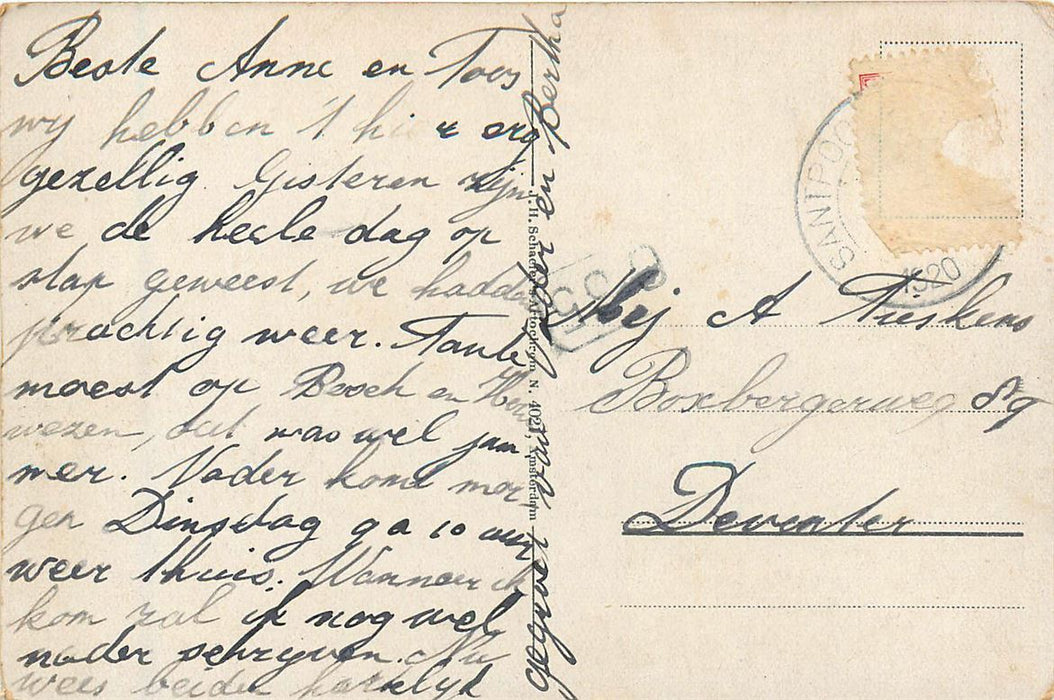 Beste Anne en Toos
wij hebben 't hier erg
gezellig. Gisteren zijn
we de heele dag op
stap geweest, we hadden
prachtig weer. Tante
moest op Bosch en Hoven
wezen, dat was wel jam
mer. Vader komt mor
gen Dinsdag ga 10 uur
weer thuis. Wanneer ik
kom zal ik nog wel
nader schryven. Nu
wees beiden hartelyk
gegroet van Vader en Bertha
J. H. Schaefer's Amsterdam
SANTPOO
1520
Mej A Fieskens
Boxbergerweg 89
Deventer